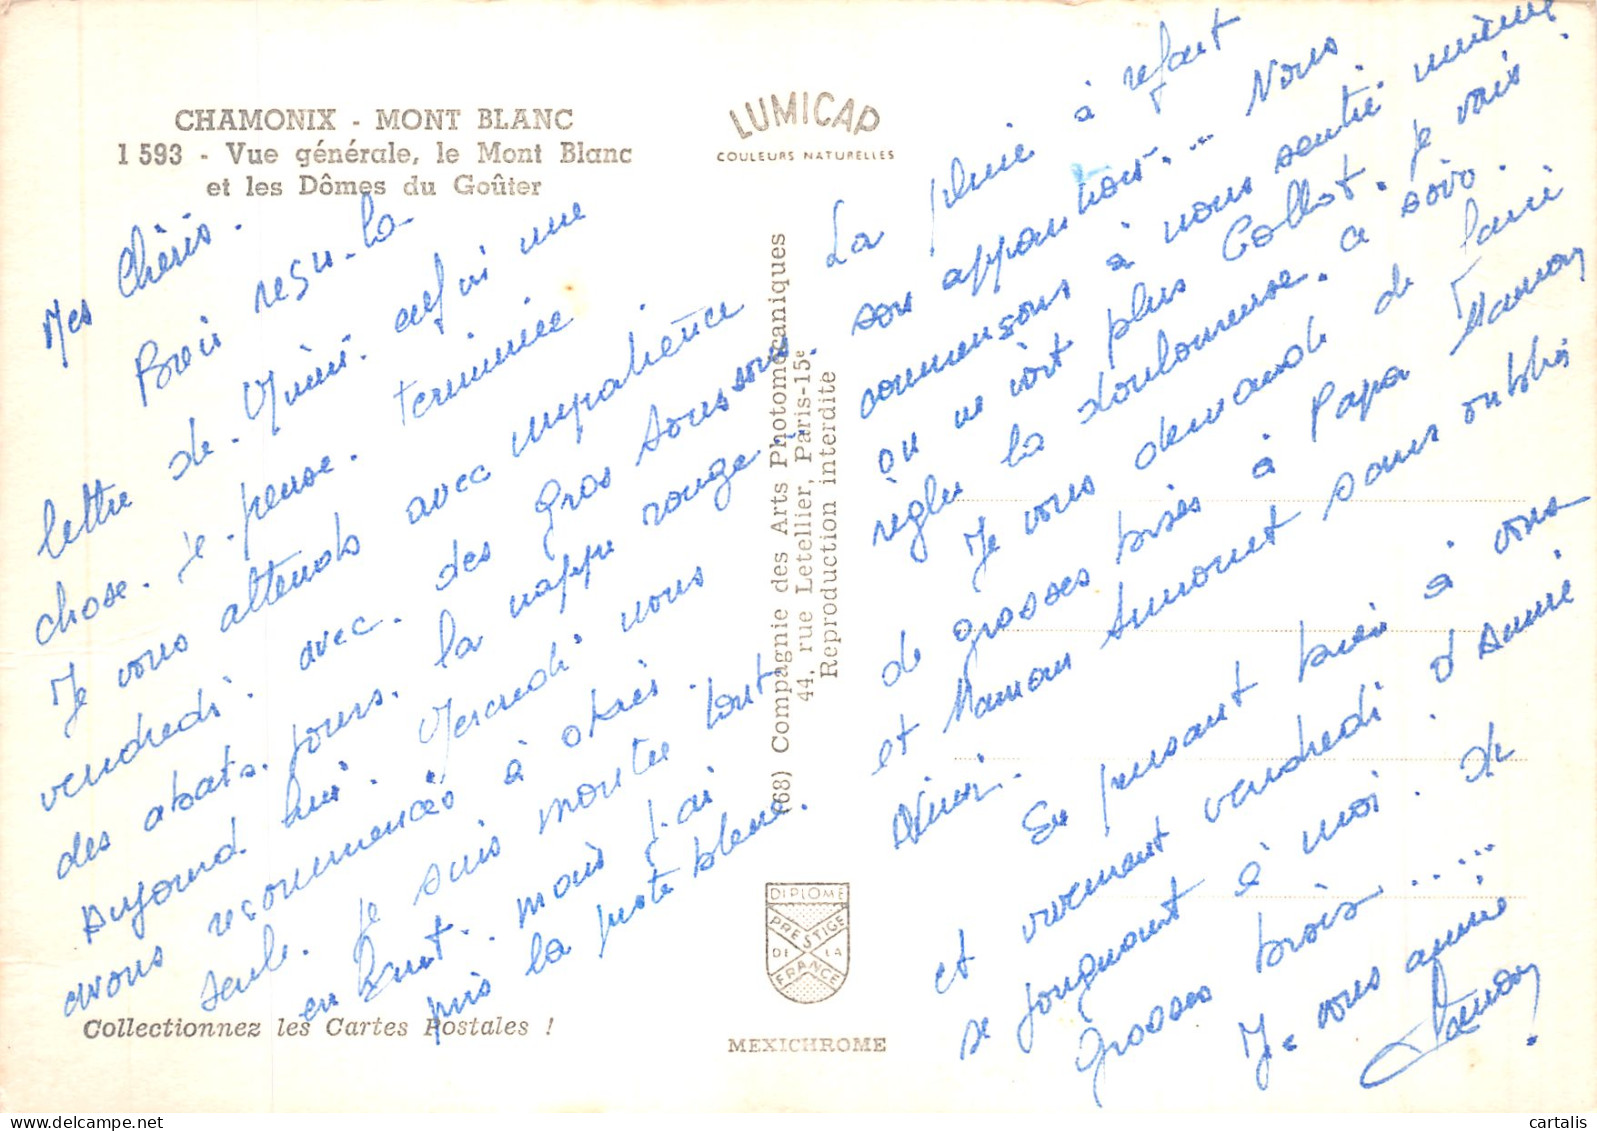 CHAMONIX - MONT BLANC
1 593 - Vue générale, le Mont Blanc
et les Dômes du Goûter
LUMICAP
COULEURS NATURELLES
Mes Chéris.
Bien reçu la
lettre de Mimi. enfin une
chose. je pense. terminée
Je vous attends avec impatience
vendredi. avec. des gros sous
des abats. jours. la nappe rouge
Aujourd hui. Mercredi nous
avons recommencés à
seule. Je suis montée tout
en haut. mais j'ai
pris la piste bleue.
La pluie à refait
son apparition... Nous
commençons à nous sentir
on ne voit plus Collot. je vais
régler la douloureuse. a
Je vous demande de faire
de grosses bises à Papa Maman
et Maman sans oublier
En pensant bien à vous
et vivement vendredi. d'Annie
se joignant à moi. de
grosses bises.....
Je vous aime
(68) Compagnie des Arts Photomécaniques
44, rue Letellier, Paris-15e
Reproduction interdite
DIPLOME
PRESTIGE
DE LA
FRANCE
Collectionnez les Cartes Postales !
MEXICHROME
cartalis